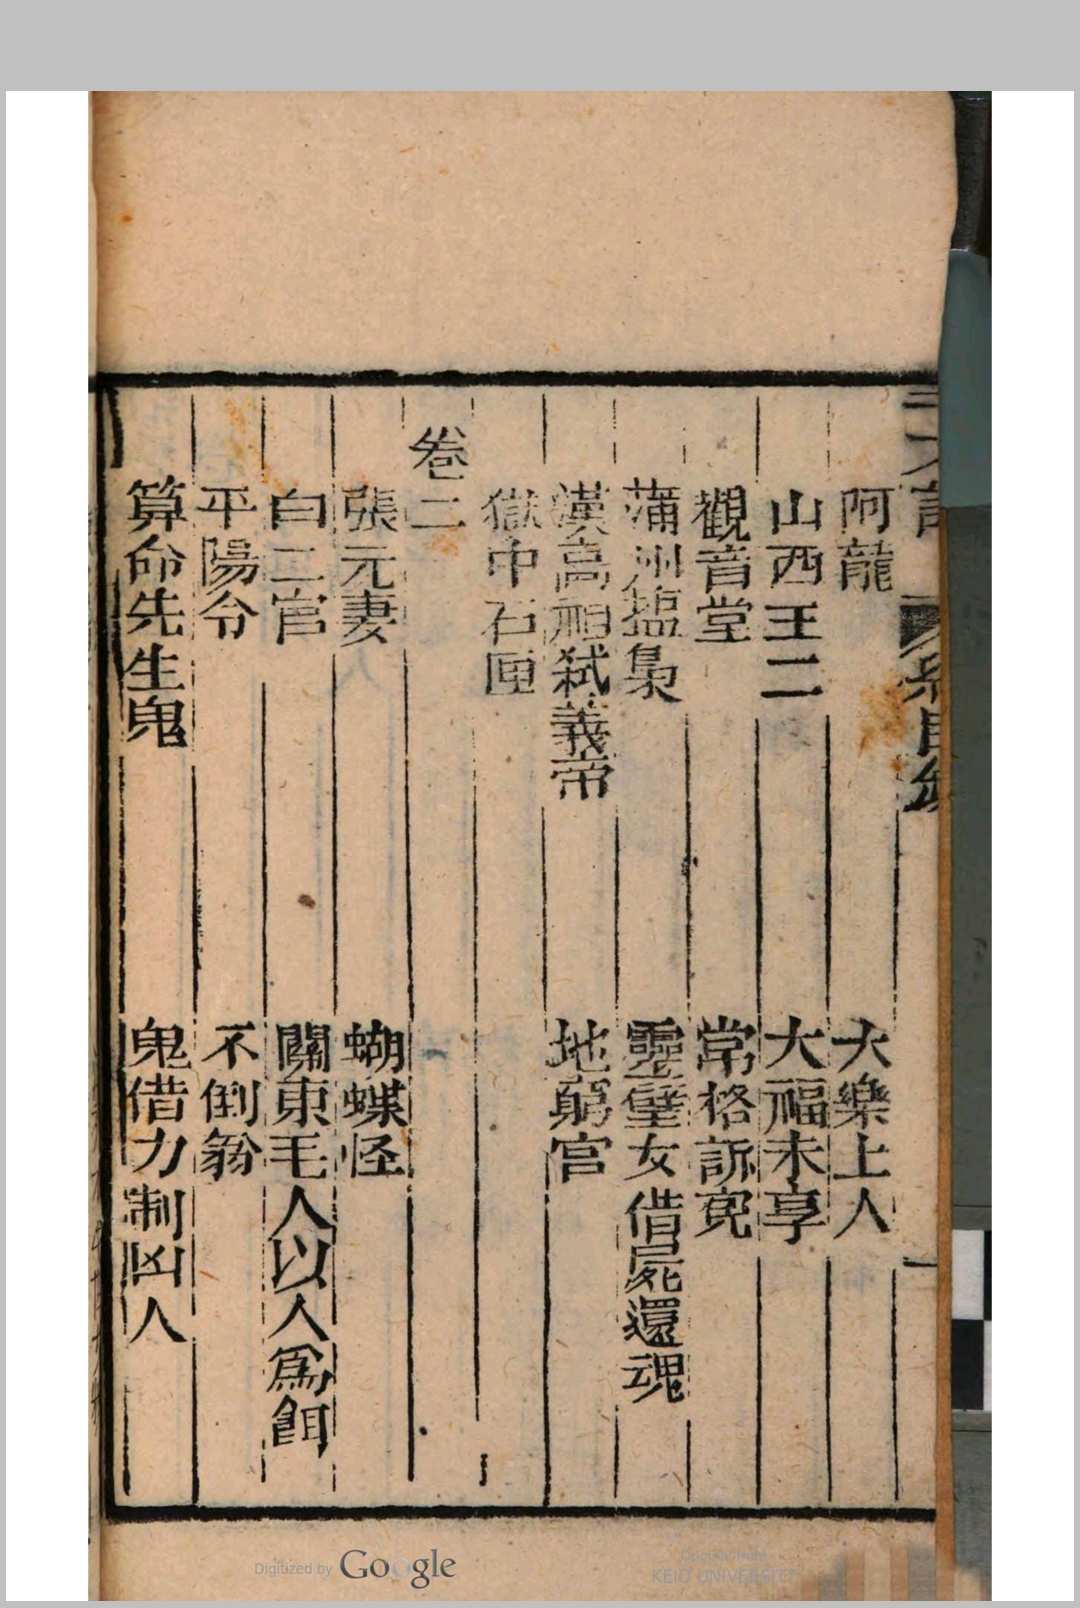 阿龍　大樂上人
山西王二　大福未享
觀音堂　常格訴寃
蒲州塩梟　靈璧女借屍還魂
漢高祖弑義帝　地窮宮
獄中石匣
卷二
張元妻　蝴蝶怪
白二官　關東毛人以人爲餌
平陽令　不倒翁
算命先生鬼　鬼借力制凶人
Digitized by Google
Original from
KEIO UNIVERSITY